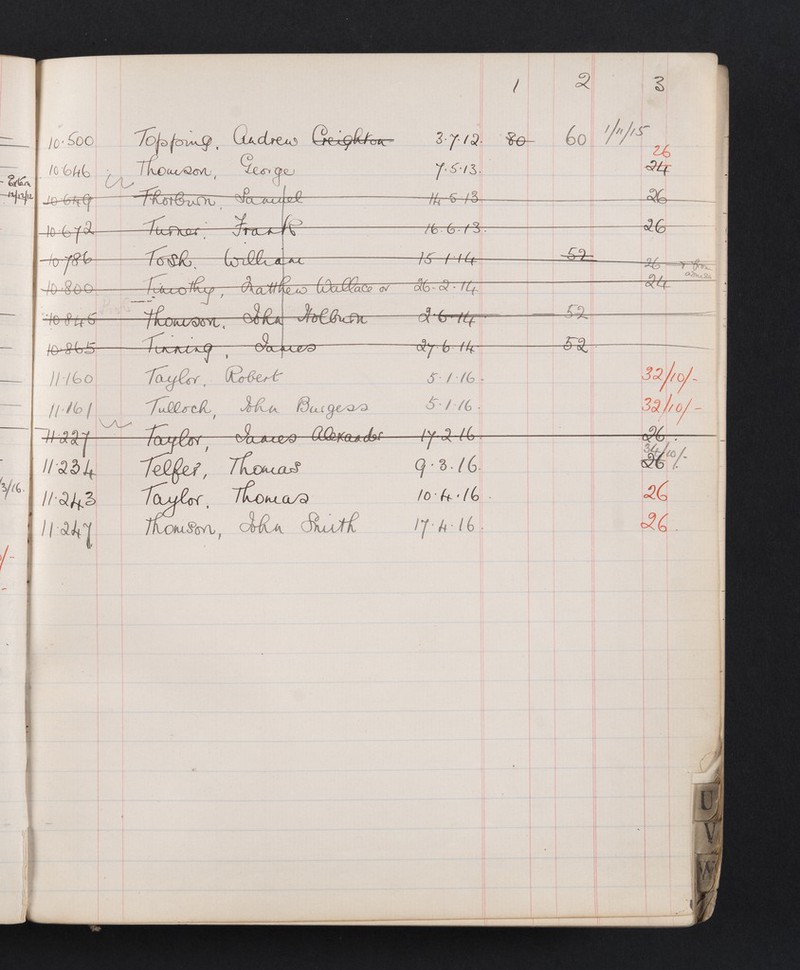 1 2 3
10·500 Topping, Andrew Creighton 3·7·12. 80 60 1/11/15
26
10646 Thomson, George 7·5·13. 24
10649 Thorburn, Samuel 14·5·13 26
10672 Turner, Frank 16·6·13. 26
10786 Tosh, William 15·1·14 52 26
10·800 Timothy, Matthew Wallace or 26·2·14 24
10846 Thomson, John Holburn 2·6·14 52
10·865 Tinning, James 27·6·14 52
11·160 Taylor, Robert 5·1·16. 32/10/-
11·161 Tulloch, John Burgess 5·1·16. 32/10/-
11·227 Taylor, James Alexander 17·2·16 26.
34/10/-
11·234 Telfer, Thomas 9·3·16. 26
3/16.
11·243 Taylor, Thomas 10·4·16. 26
11·247 Thomson, John Smith 17·4·16. 26.
U
V
W